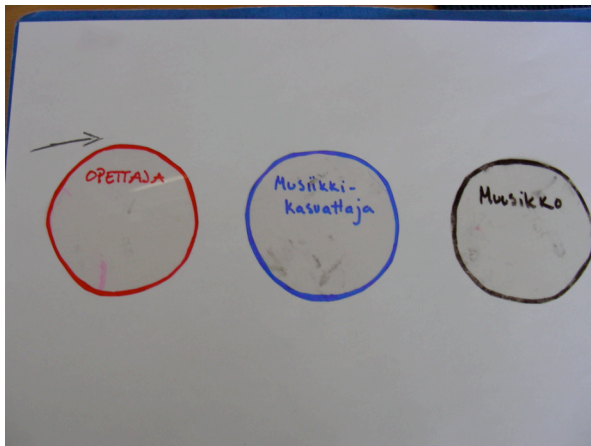 OPETTAJA
Musiikki-
kasvattaja
Muusikko